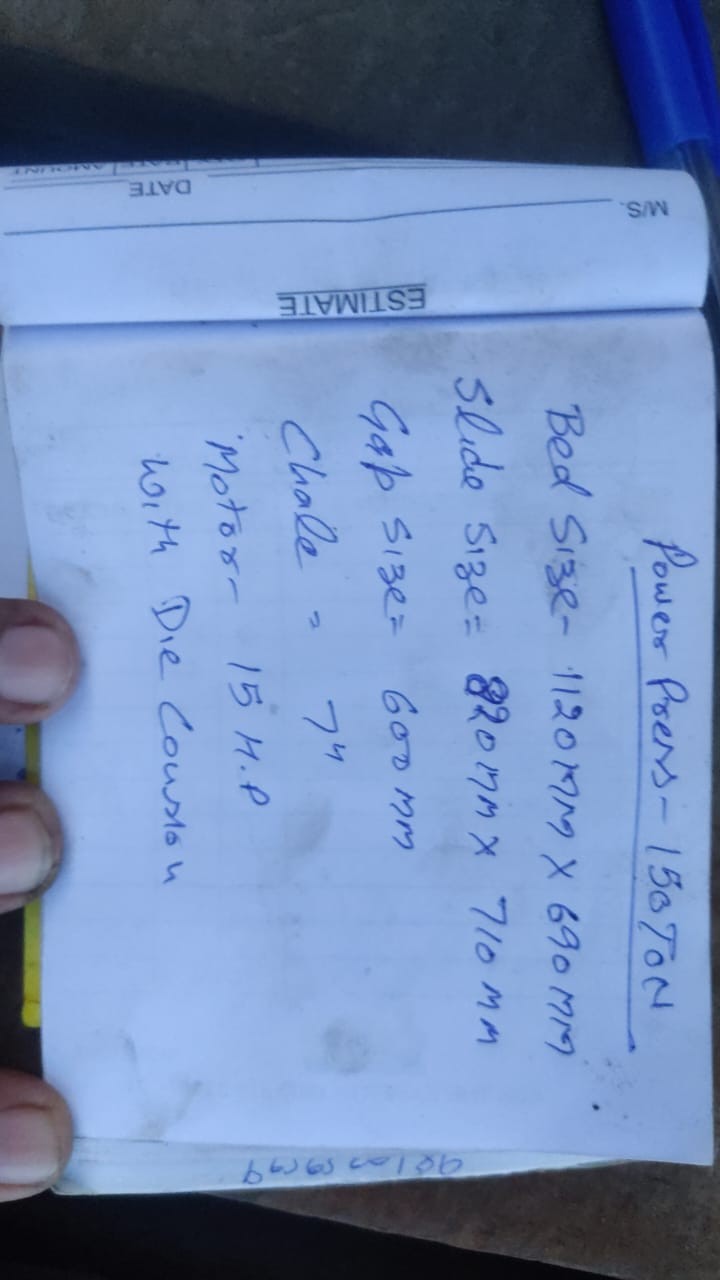 M/S.
DATE
ESTIMATE
Power Press - 150 TON
Bed Size - 1120 MM X 690 MM
Slide Size = 820 MM X 710 MM
Gap Size = 600 MM
Chale = 7"
Motor - 15 H.P
With Die Coushon